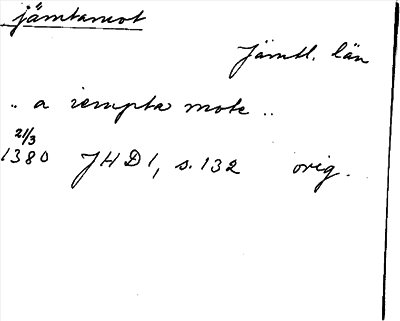 jämtamot
Jämtl. län
.. a iempta mote ..
21/3
1380 JHD 1, s. 132 orig.